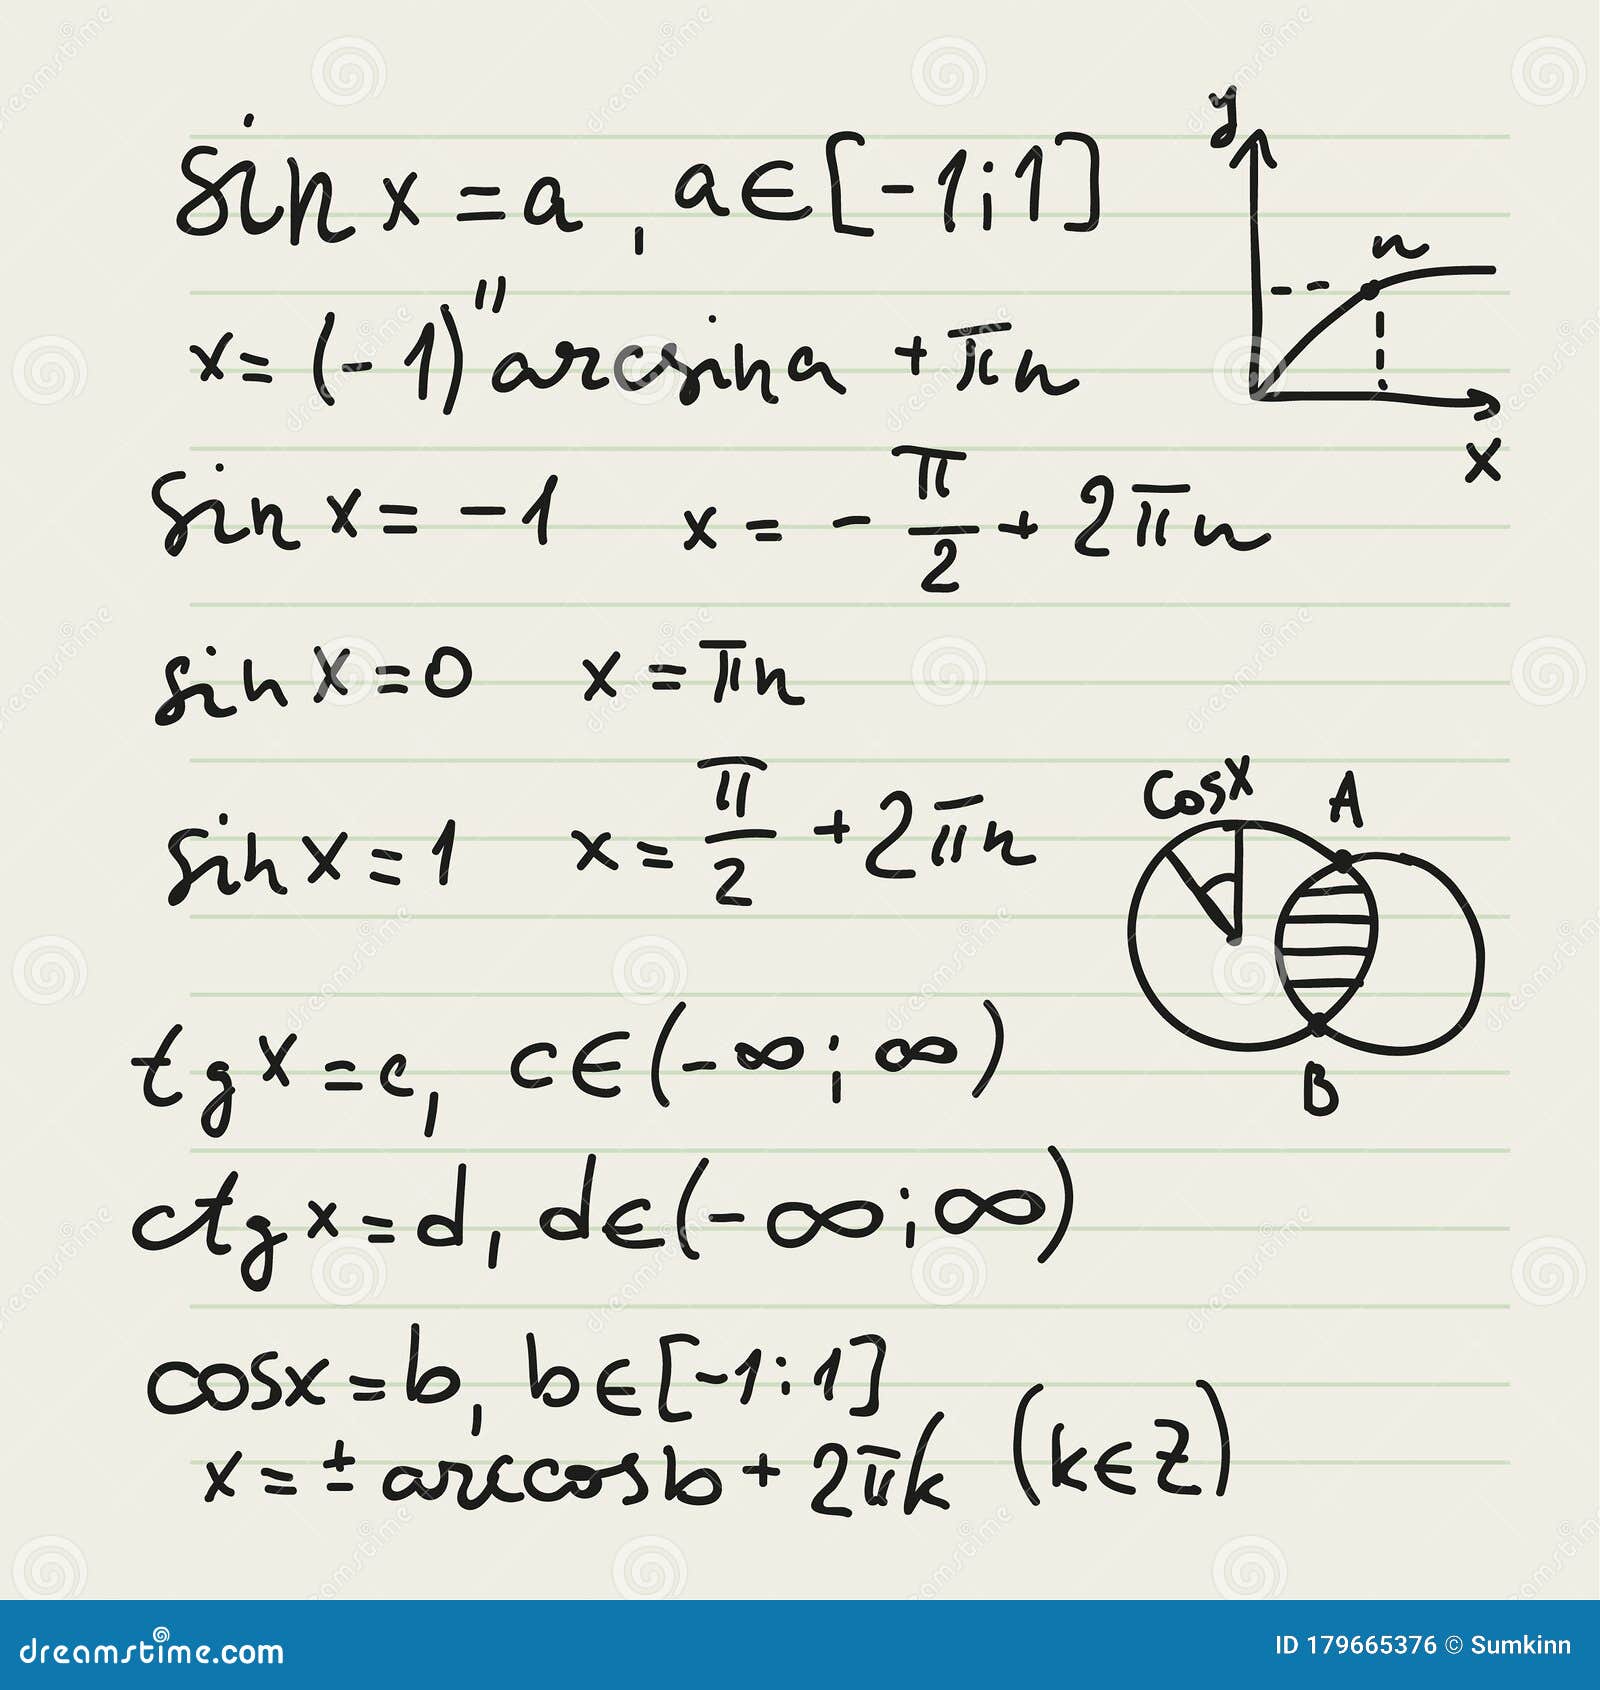 sin x = a, a ∈ [-1;1]
x = (-1)" arcsin a + πn
sin x = -1 x = -π/2 + 2πn
sin x = 0 x = πn
sin x = 1 x = π/2 + 2πn
tg x = c, c ∈ (-∞; ∞)
ctg x = d, d ∈ (-∞; ∞)
cos x = b, b ∈ [-1:1]
x = ± arccos b + 2πk (k ∈ Z)
y
n
x
cos x
A
B
dreamstime.com
ID 179665376 © Sumkinn